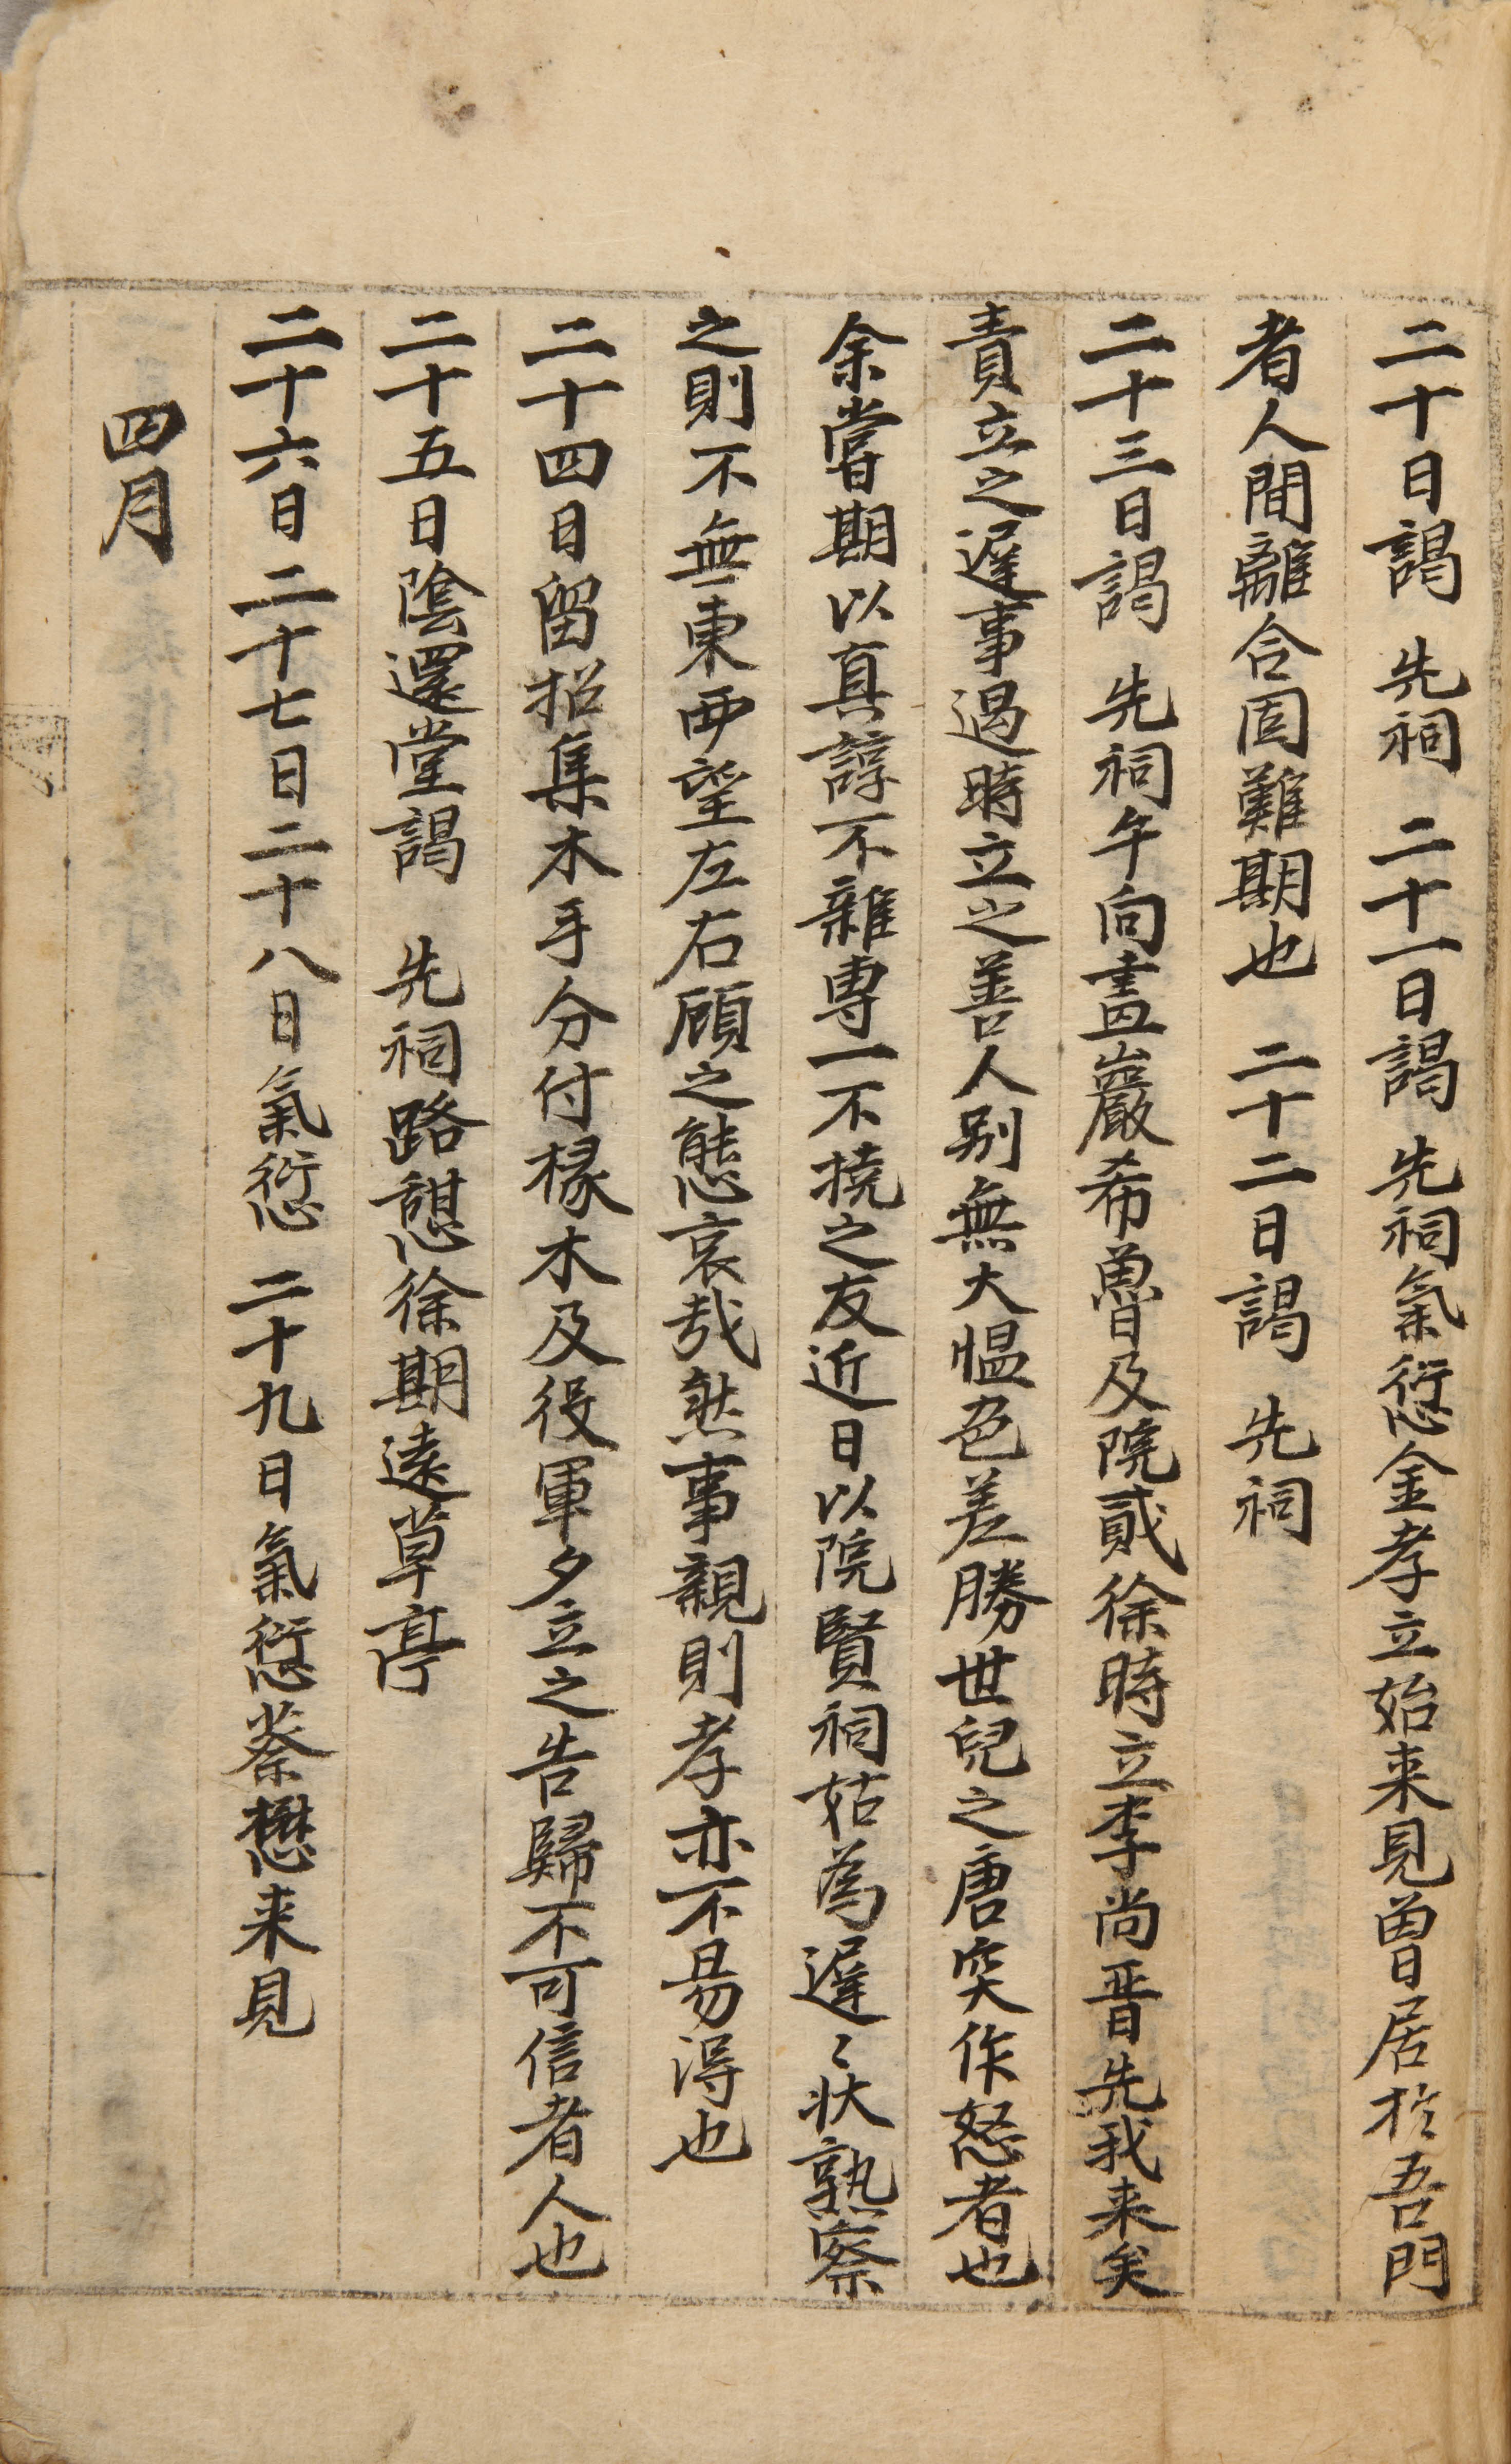 二十日謁　先祠　二十一日謁　先祠氣愆金孝立始来見曾居於吾門
者人間離合固難期也　二十二日謁　先祠
二十三日謁　先祠午向畫巖希魯及院貳徐時立李尚晋先我来矣
責立之遲事過時立之善人別無大慍色差勝世兒之唐突作怒者也
余嘗期以真諄不雜專一不撓之友近日以院賢祠姑為遲〻状熟察
之則不無東西望左右顧之態哀哉然事親則孝亦不易得也
二十四日留招集木手分付椽木及役軍夕立之告歸不可信者人也
二十五日陰還堂謁　先祠路憇徐期遠草亭
二十六日二十七日二十八日氣愆　二十九日氣愆蔡懋来見
四月